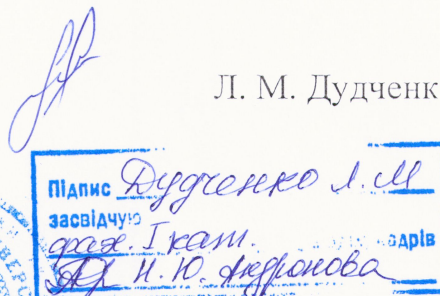 Л. М. Дудченк
Підпис Дудченко Л. М
засвідчую
фах. І кат. адрів
Н. Ю. Андронова